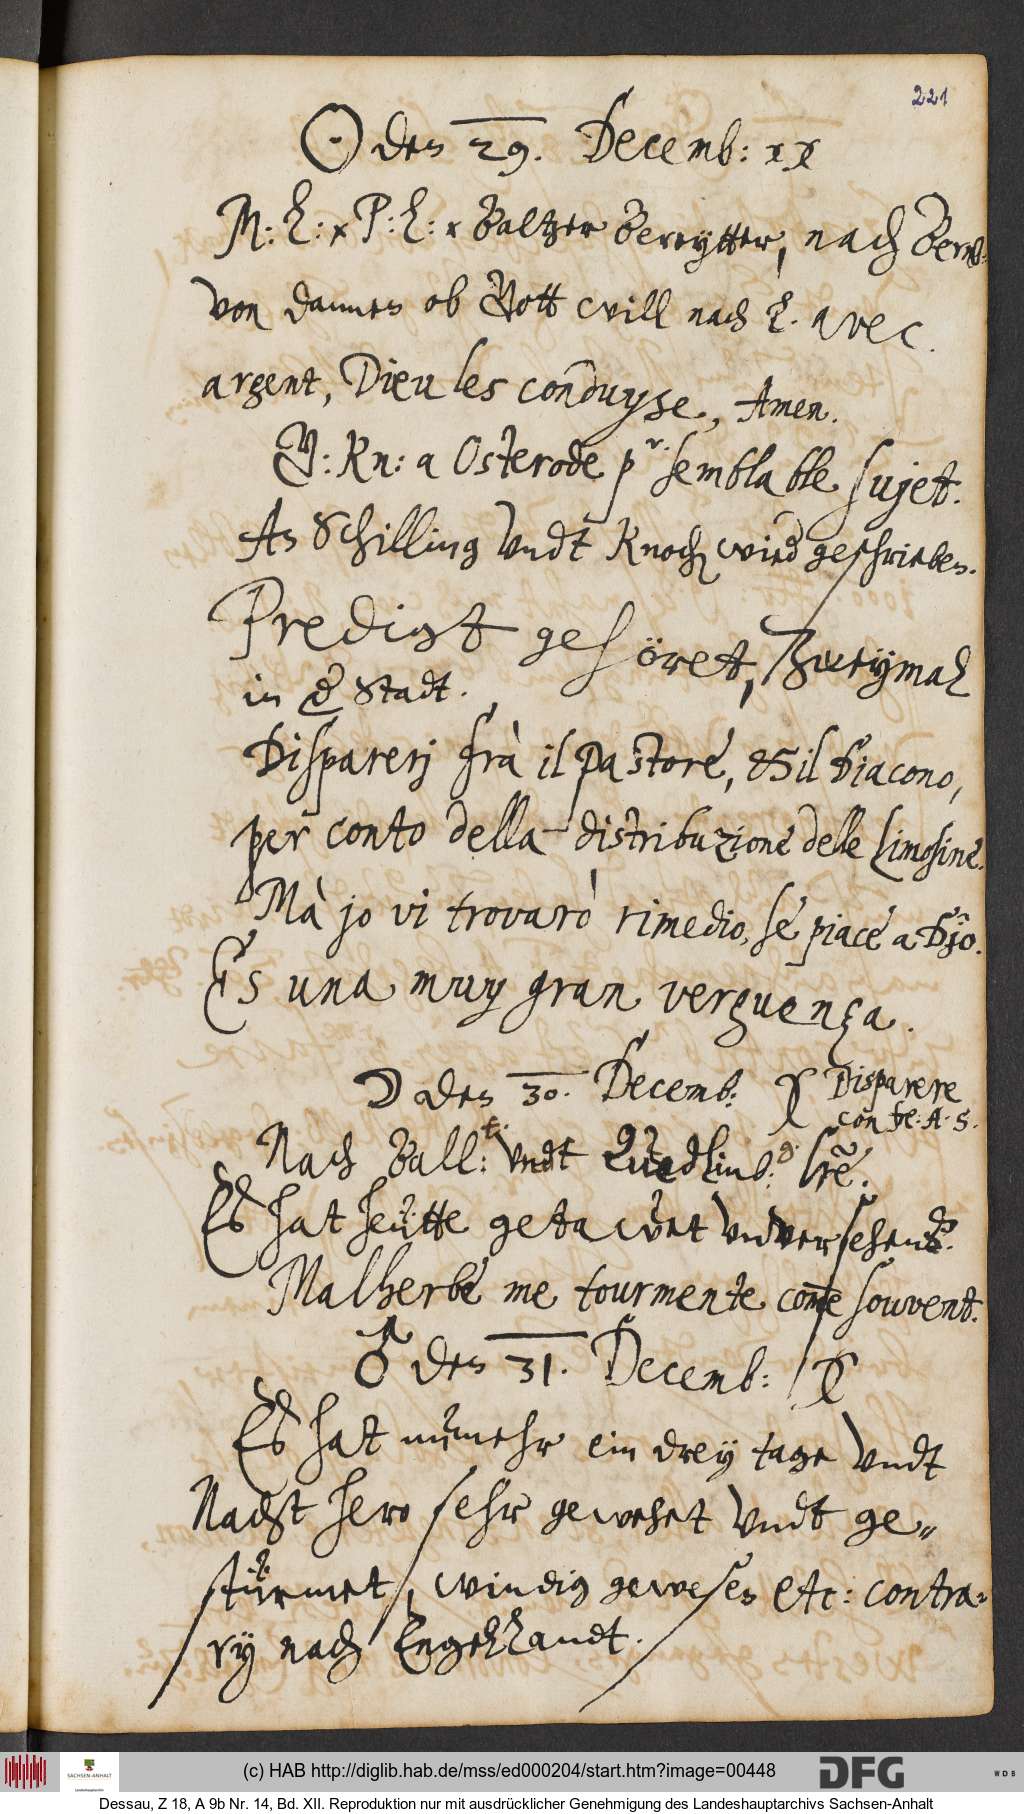 221
☉ den 29. Decemb: x x
M: L: x P: L: x Baltzer Bereytter, nach Bernb:
von dannen ob Gott will nach L. avec
argent, Dieu les conduyse, Amen.
Kn: a Osterode pr. semblable sujet.
An Schilling undt Knoch wird geschrieben.
Predigt gehöret, Zweymal
in der Stadt.
Disparerj frà il Pastore, et il Diacono,
per conto della distribuzione delle limosine.
Mà jo vi trovarò rimedio, se piace a Djo.
Es una muy gran verguença.
☽ den 30. Decemb: X Disparere
con fe: A. S.
Nach Ball: undt Quedlinb:
Es hat heütte getawet unversehens.
Malherbe me tourmente come souvent.
♂ den 31. Decemb: X
Es hat nunmehr ein drey tage undt
Nacht hero sehr gewehet undt ge=
stürmet, windig gewesen etc: contra=
ry nach Engellandt.
(c) HAB http://diglib.hab.de/mss/ed000204/start.htm?image=00448
SACHSEN-ANHALT
Landeshauptarchiv
DFG
WDB
Dessau, Z 18, A 9b Nr. 14, Bd. XII. Reproduktion nur mit ausdrücklicher Genehmigung des Landeshauptarchivs Sachsen-Anhalt